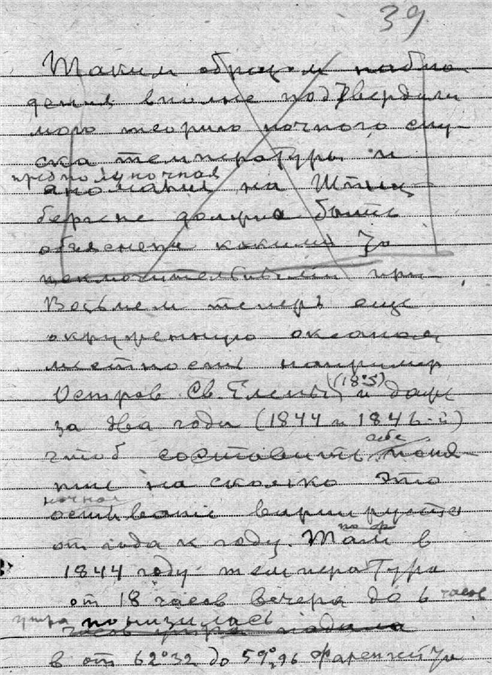 39
Таким образом наблю-
дения вполне подтвердили
мою теорию ночного спу-
ска температуры и
предполуночная
аномалия на Шпиц-
бергене должна быть
объяснена какими то
исключительными при-
Возьмем теперь еще
окруженную океаном
местность например
Остров Св. Елены (18°S) и даже
за два года (1844 и 1846-й)
чтоб составить себе поня-
тие на сколько это
ночное
остывание варьируется
от года к году. Там в
1844 году температура
от 18 часов вечера до 6 часов
утра понизилась
часов утра падала
в от 62°32 до 59°,96 Фаренгейта